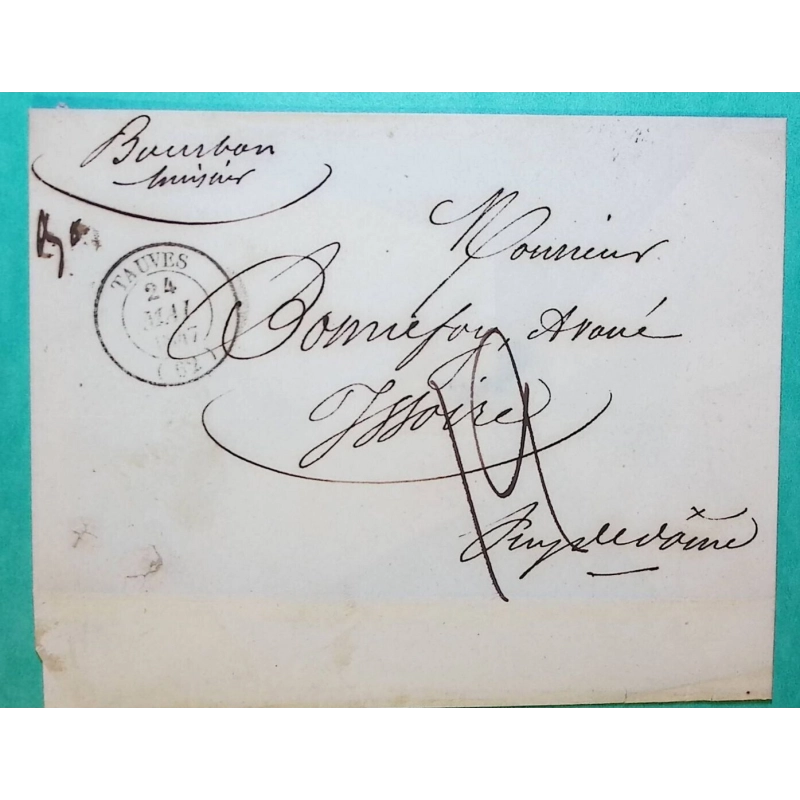 Bourbon
huissier
TAUVES
24
MAI
(62)
Monsieur
Bonnefoy, Avoué
Issoire
Puy de dôme